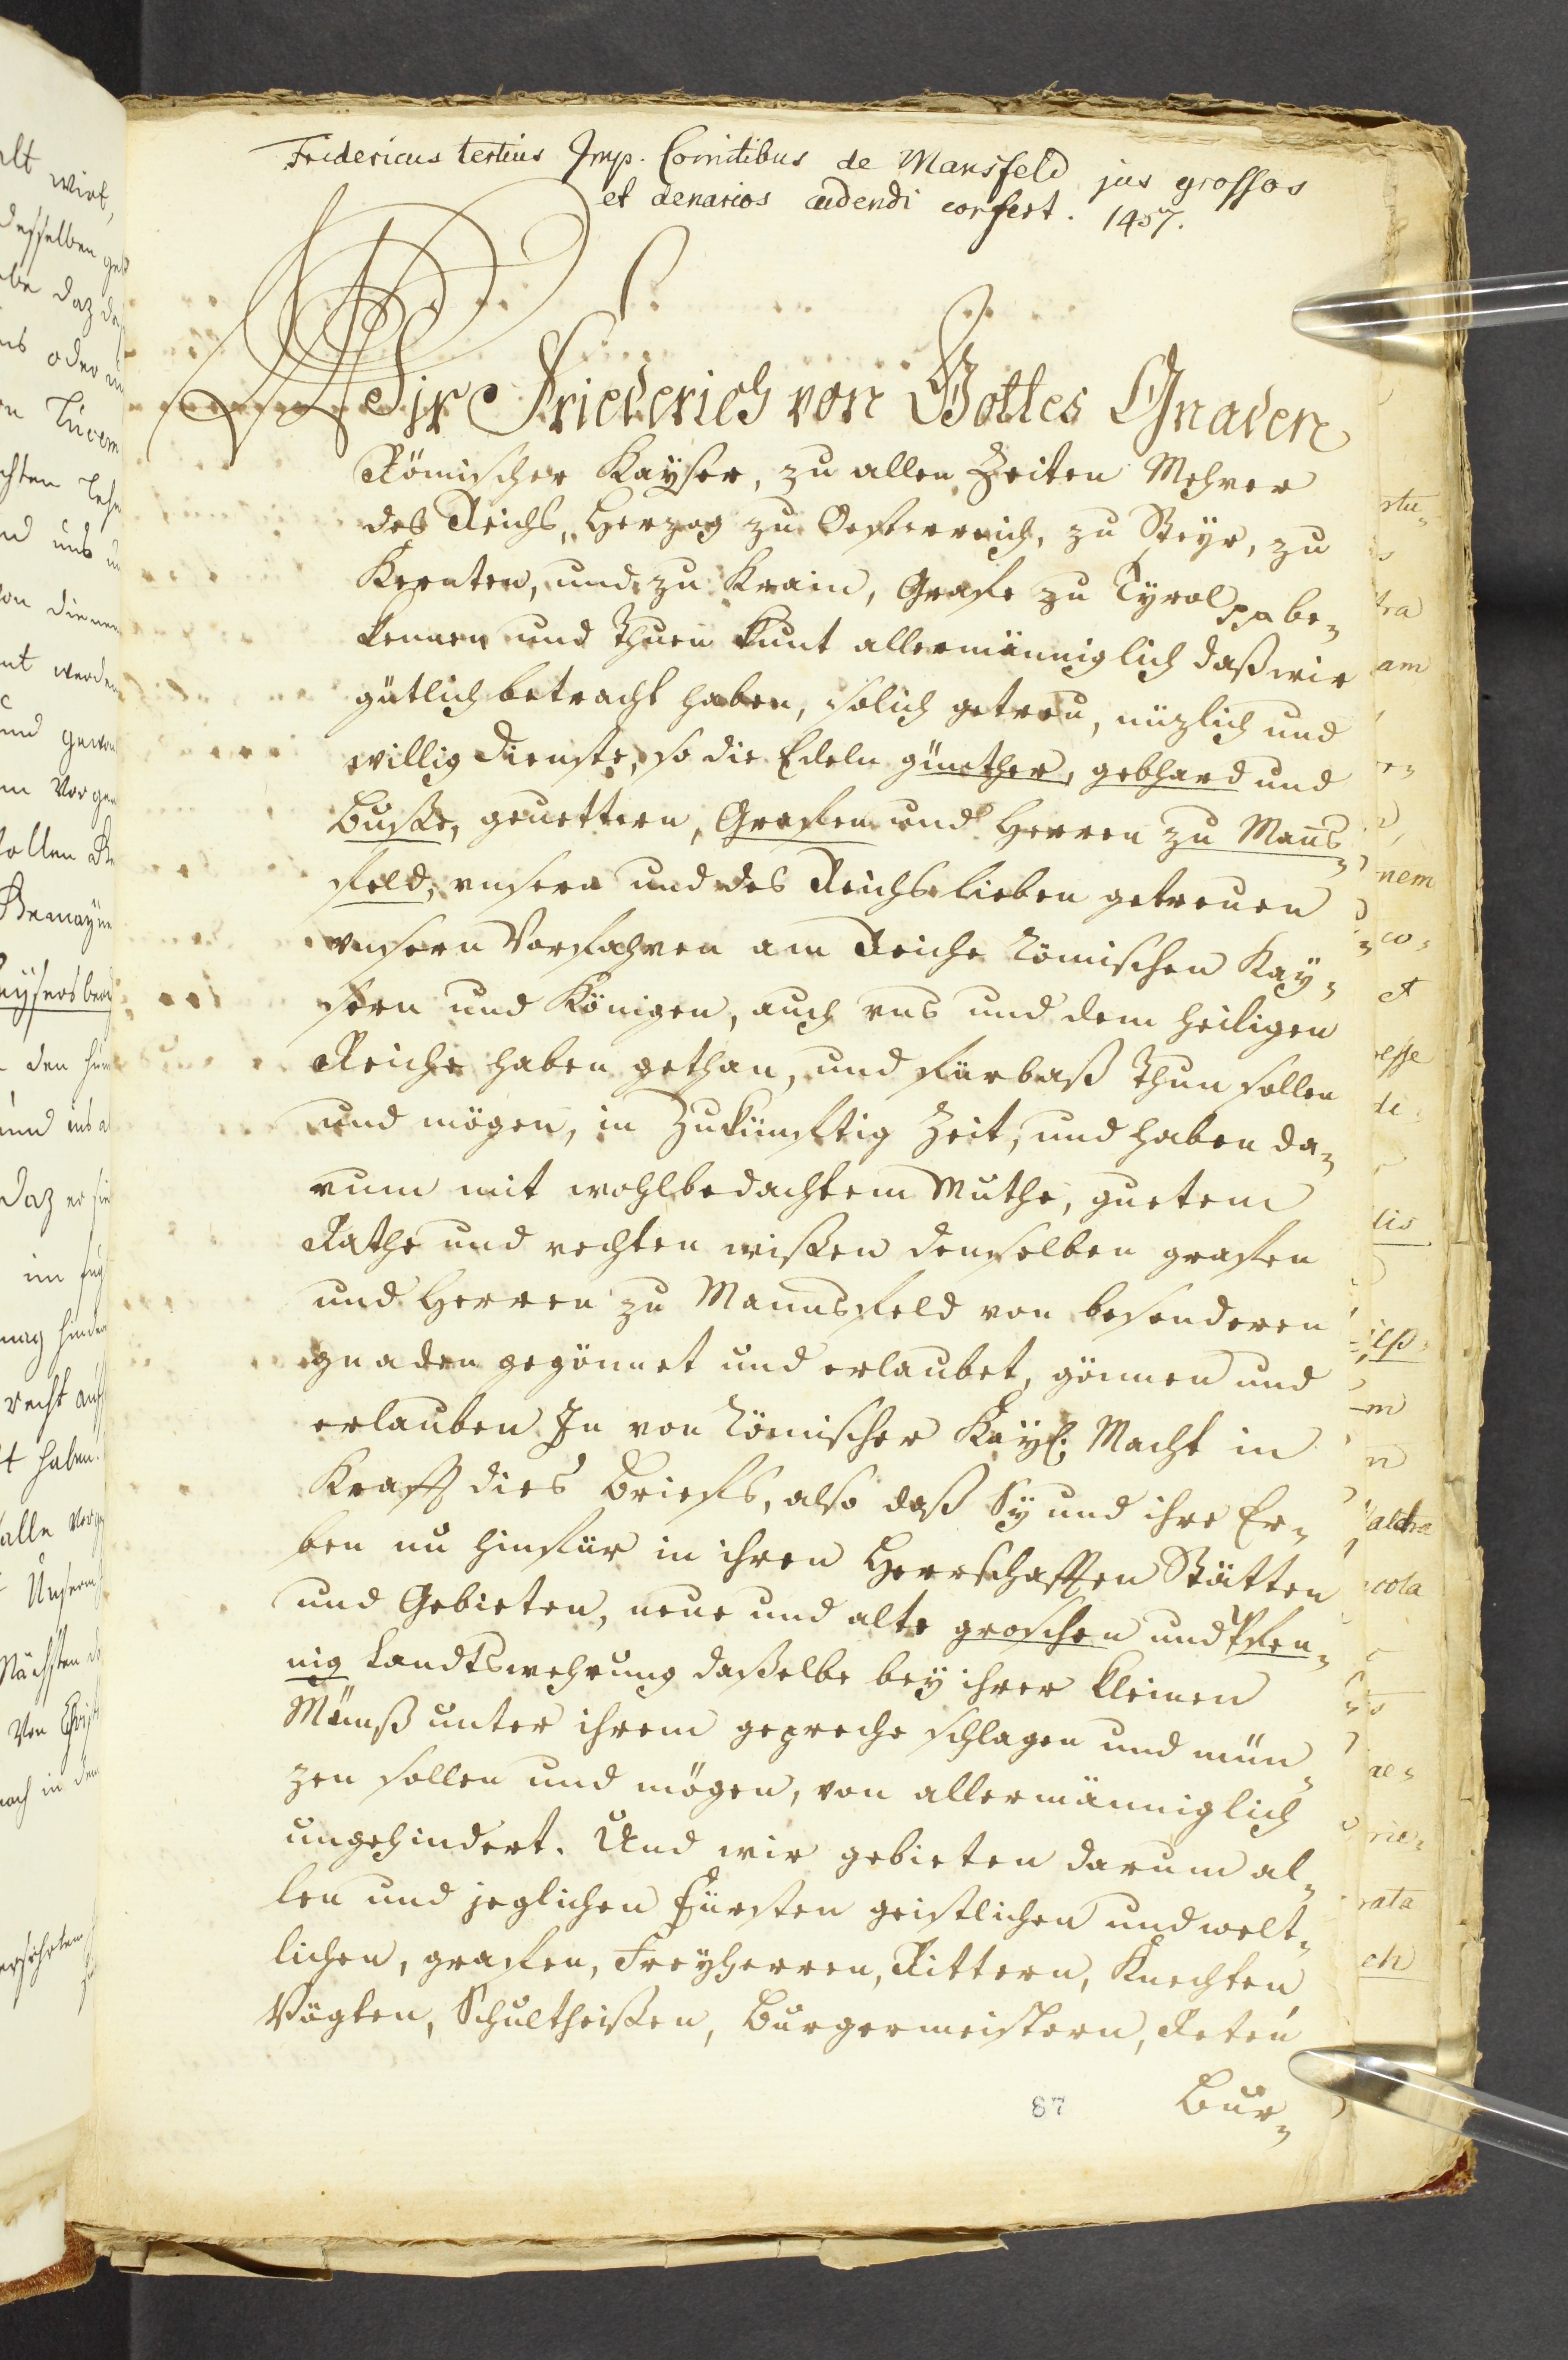 Fridericus tertius Imp. Comitibus de Mansfeld jus grossos
et denarios cudendi confert. 1457.
Wir Friederich von Gottes Gnaden
Römischer Kayser, zu allen Zeiten Mehrer
des Reichs, Herzog zu Oesterreich, zu Steyr, zu
Kernten, und zu Krain, Grafe zu Tyrol pp be-
kennen und thuen kunt allermänniglich daß wir
gütlich betracht haben, solich getreu, nüzlich und
willig Dienste, so die Edeln günther, gebhard und
Busße, geuettern, Grafen und Herren zu Mans-
feld, vnsern und des Reichs lieben getreuen
vnsern Vorfahren am Reiche Römischen Kay-
sern und Königen, auch vns und dem heiligen
Reiche haben gethan, und fürbaß thun sollen
und mögen, in Zukünftig Zeit, und haben da-
rum mit wohlbedachtem Muthe, guetem
Rathe und rechten wißen denselben grafen
und Herren zu Mannsfeld von besonderen
gnaden gegönnet und erlaubet, gönnen und
erlauben In von Römischer Kayß. Macht in
Krafft dies Briefs, also daß Sy und ihre Er-
ben nu hinfür in ihren Herrschafften Stätten
und Gebieten, neue und alte groschen und Pfen-
nig Landtswehrung daßelbe bey ihrer kleinen
Münß unter ihrem gepreche schlagen und mün-
zen sollen und mögen, von allermänniglich
ungehindert. Und wir gebieten darum al-
len und jeglichen Fürsten geistlichen und welt-
lichen, grafen, Freyherren, Rittern, Knechten
Vögten, Schultheißen, Burgermeistern, Reten
87 Bur-